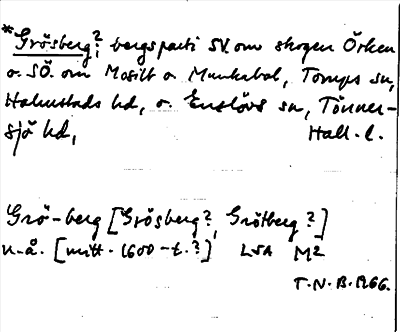 *Grösberg? bergsparti SV. om skogen Örken
o. SÖ. om Mosilt o Munkabol, Torups sn,
Halmstads hd, o. Enslövs sn, Tönner-
sjö hd, Hall. l.
Grö-berg [Grösberg?, Grötberg?]
u.å. [mitt. 1600-t.?] LSA M2
T.N.B. 1966.